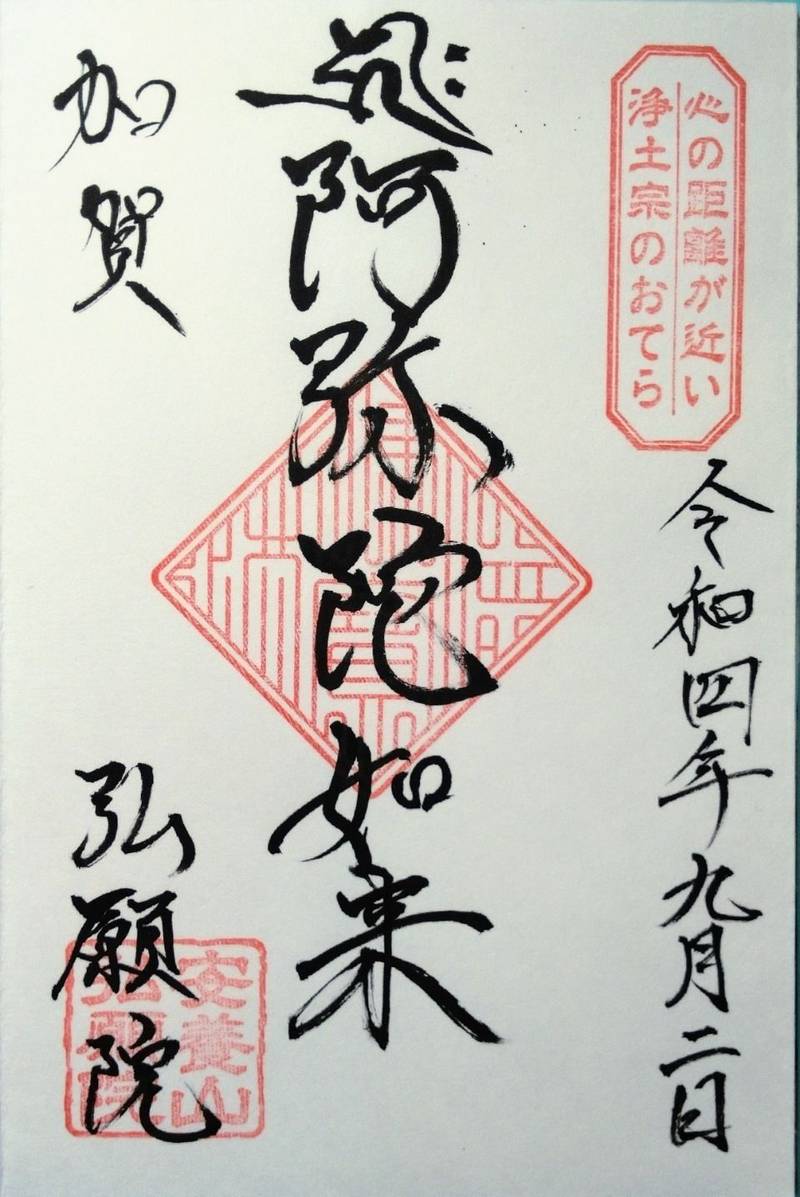 心の距離が近い
浄土宗のおてら
令和四年九月二日
阿弥陀如来
加賀
弘願院